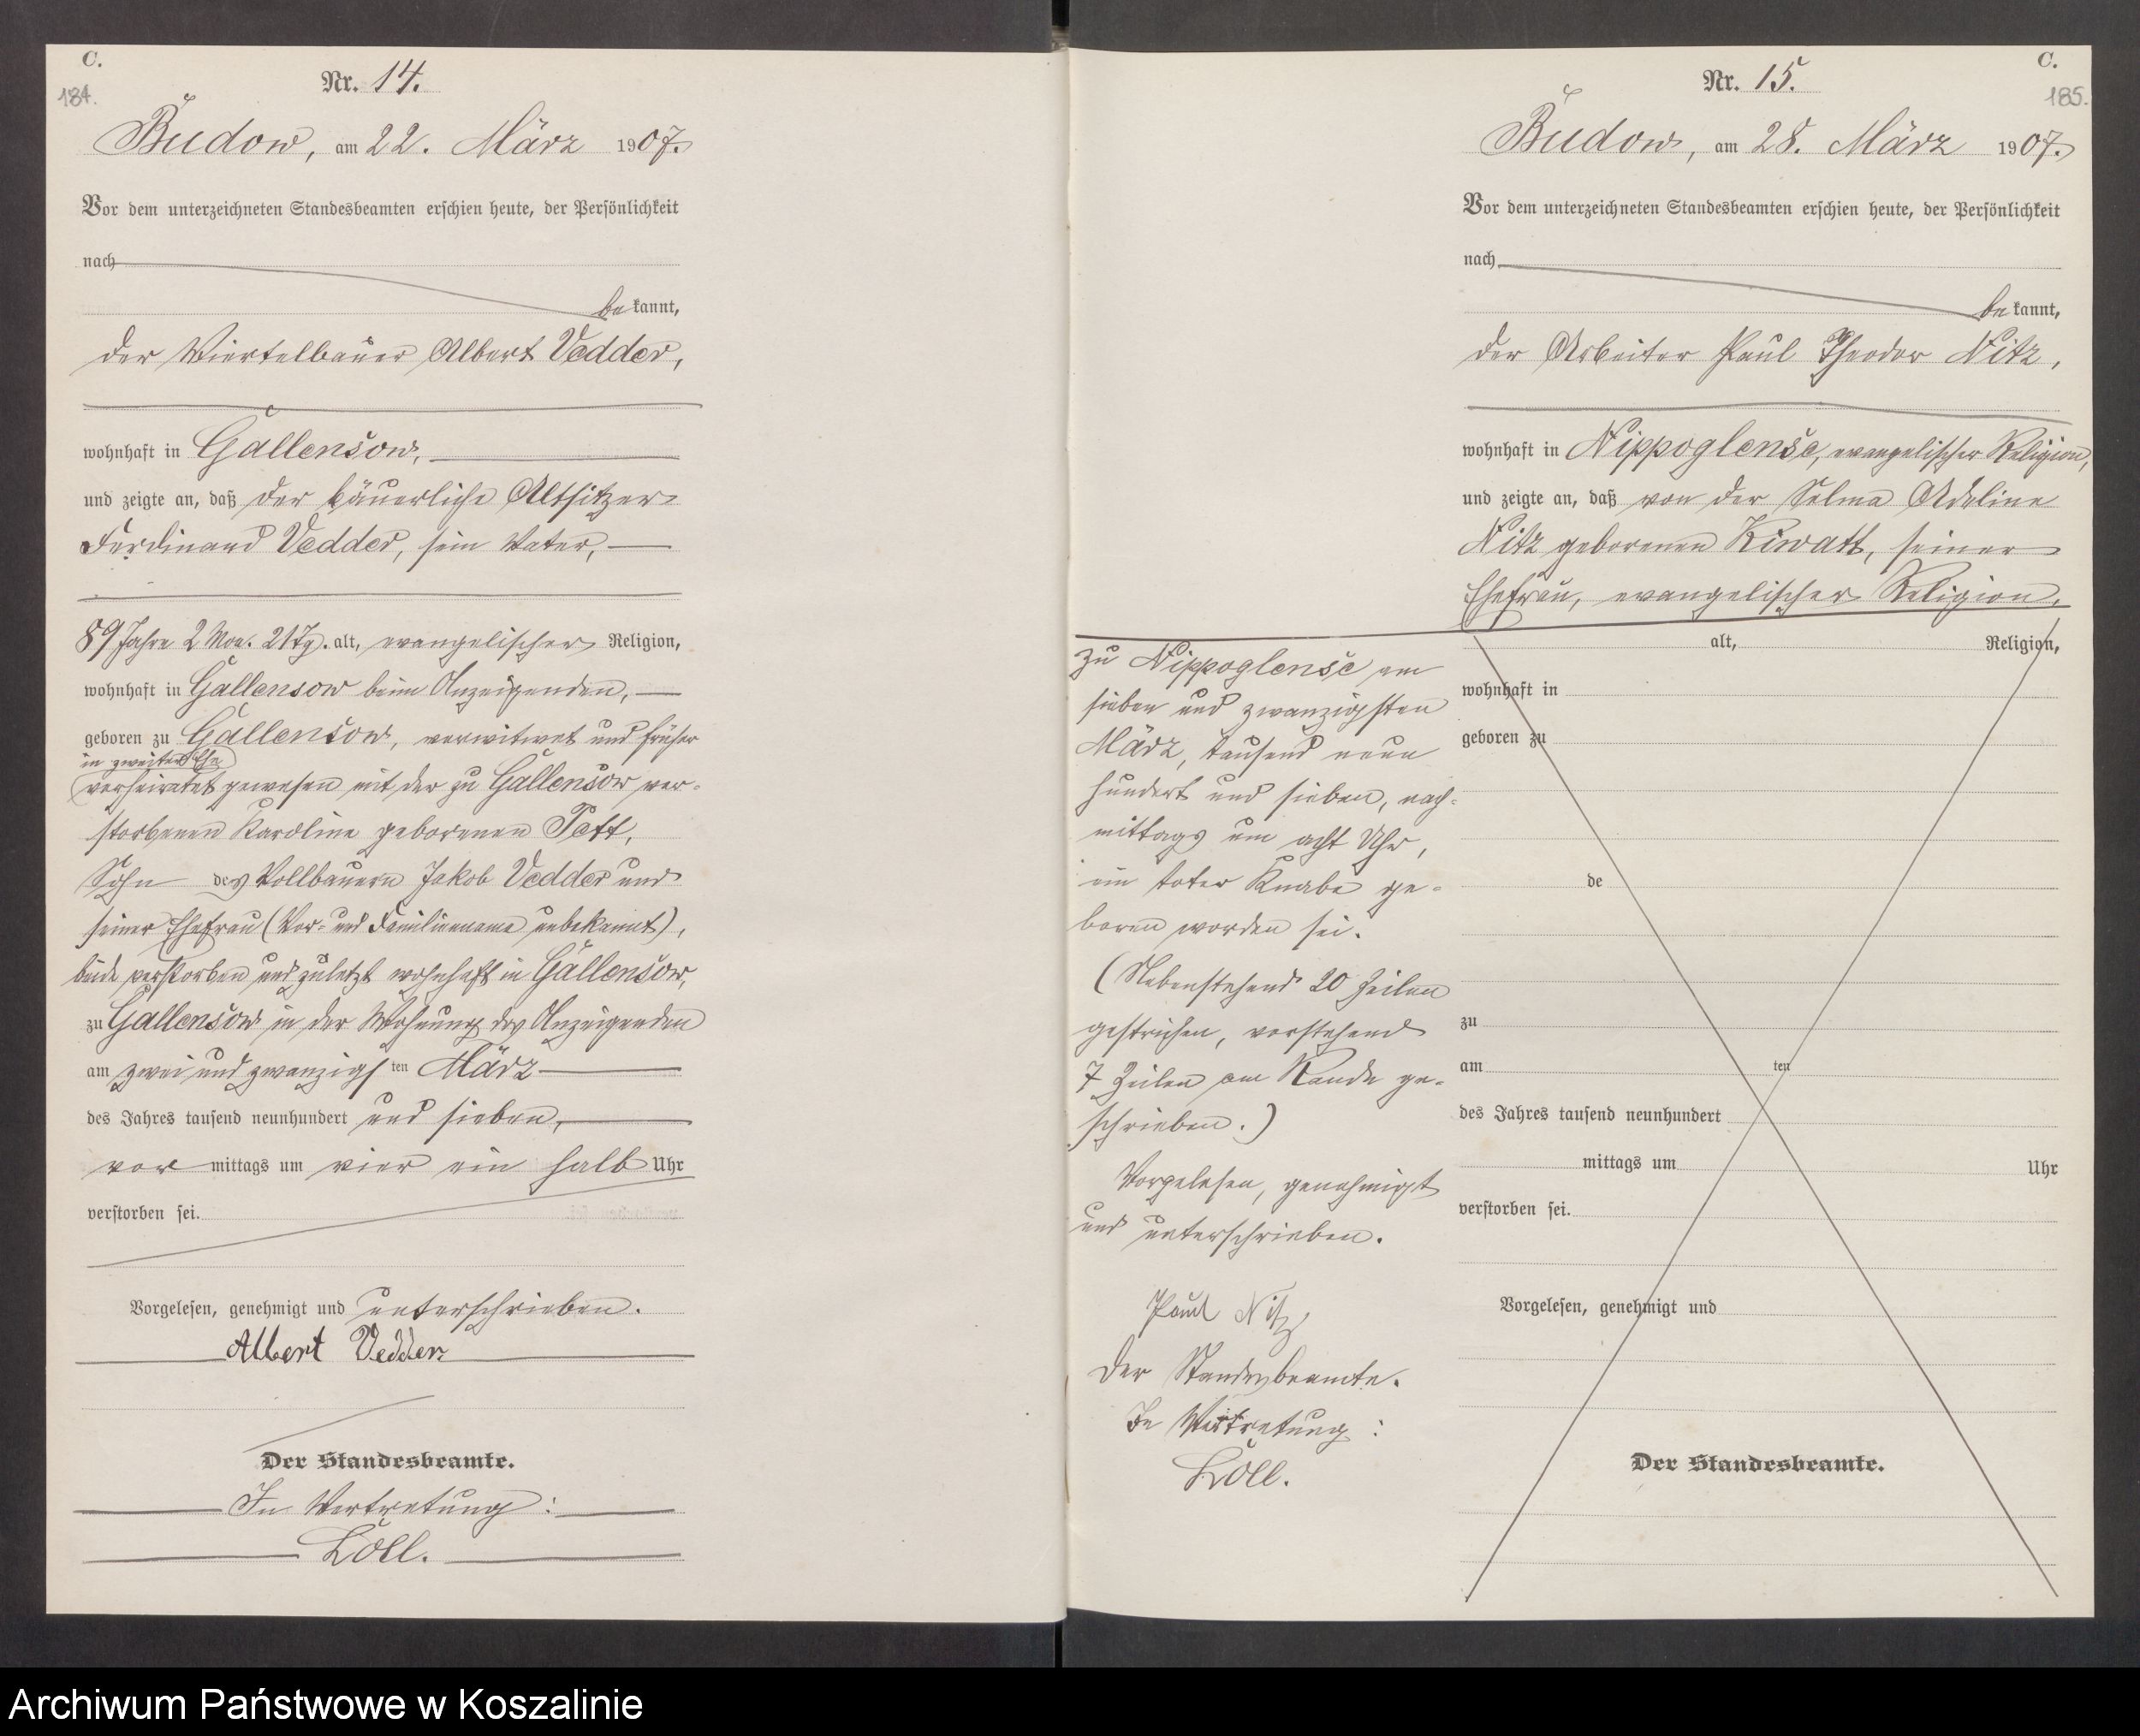 C.
184.
Nr. 14.
Budow, am 22. März 1907.
Vor dem unterzeichneten Standesbeamten erschien heute, der Persönlichkeit
nach
bekannt,
der Viertelbauer Albert Vedder,
wohnhaft in Gallensow,
und zeigte an, daß der bäuerliche Altsitzer
Ferdinand Vedder, sein Vater,
89 Jahre 2 Mon. 21 Tg. alt, evangelischer Religion,
wohnhaft in Gallensow beim Anzeigenden,
geboren zu Gallensow, verwitwet und früher
in zweiter Ehe
verheiratet gewesen mit der zu Gallensow ver-
storbenen Karoline geborenen Patt,
Sohn des Vollbauern Jakob Vedder und
seiner Ehefrau (Vor- und Familienname unbekannt),
beide verstorben und zuletzt wohnhaft in Gallensow,
zu Gallensow in der Wohnung des Anzeigenden
am zwei und zwanzigsten März
des Jahres tausend neunhundert und sieben,
vor mittags um vier ein halb Uhr
verstorben sei.
Vorgelesen, genehmigt und unterschrieben.
Albert Vedder
Der Standesbeamte.
In Vertretung:
Löll.
C.
185.
Nr. 15.
Budow, am 28. März 1907.
Vor dem unterzeichneten Standesbeamten erschien heute, der Persönlichkeit
nach
bekannt,
der Arbeiter Paul Theodor Nitz,
wohnhaft in Nippoglense, evangelischer Religion,
und zeigte an, daß von der Selma Adeline
Nitz geborenen Kiwatt, seiner
Ehefrau, evangelischer Religion,
zu Nippoglense am
sieben und zwanzigsten
März, tausend neun
hundert und sieben, nach-
mittags um acht Uhr,
ein toter Knabe ge-
boren worden sei.
(Nebenstehend 20 Zeilen
gestrichen, vorstehend
7 Zeilen am Rande ge-
schrieben.)
Vorgelesen, genehmigt
und unterschrieben.
Paul Nitz
Der Standesbeamte.
In Vertretung:
Löll.
alt, Religion,
wohnhaft in
geboren zu
de
zu
am ten
des Jahres tausend neunhundert
mittags um Uhr
verstorben sei.
Vorgelesen, genehmigt und
Der Standesbeamte.
Archiwum Państwowe w Koszalinie